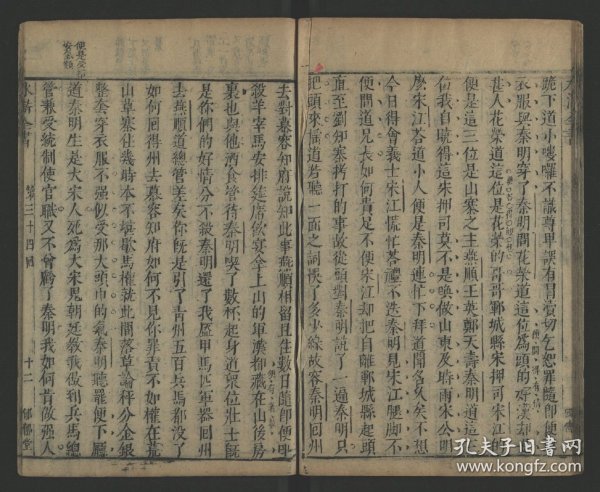 聽下道小嘍囉不識尊卑誤有冒瀆切乞恕罪隨卽便
衣服與秦明穿了秦明問花榮道這位爲頭的好漢却
甚人花榮道這位是花榮的哥哥鄆城縣宋押司宋江
便是這三位是山寨之主燕順王英鄭天壽秦明道這
位我自曉得這宋押司莫不是喚做山東及時雨宋公明
麽宋江荅道小人便是秦明連忙下拜道聞名久矣不想
今日得會義士宋江慌忙荅禮不迭秦明見宋江腿脚不
便問道兄長如何貴足不便宋江却把自離鄆城縣起頭
直至劉知寨拷打的事故從頭對秦明說了一遍秦明只
把頭來搖道若聽一面之詞悞了多少緣故容秦明囘州
去對慕容知府說知此事燕順相留且住數日隨卽便
殺羊宰馬安排筵席飲宴拿上山的軍漢都藏在山後房
裏也與他酒食管待秦明喫了數杯起身道衆位壯士旣
是你們的好情分不殺秦明還了我盔甲馬匹軍器囘州
去燕順道總管差矣你旣是引了青州五百兵馬都沒了
如何囘得州去慕容知府如何不見你罪責不如權在荒
山草寨住幾時本不堪歇馬權就此間落草論秤分金銀
整套穿衣服不強似受那大頭巾的氣秦明聽罷便下廳
道秦明生是大宋人死爲大宋鬼朝廷教我做到兵馬總
管兼受統制使官職又不曾虧了秦明我如何肯做強人
水滸全書 第三十四囘 十二 郁郁堂
孔夫子旧书网
www.kongfz.com